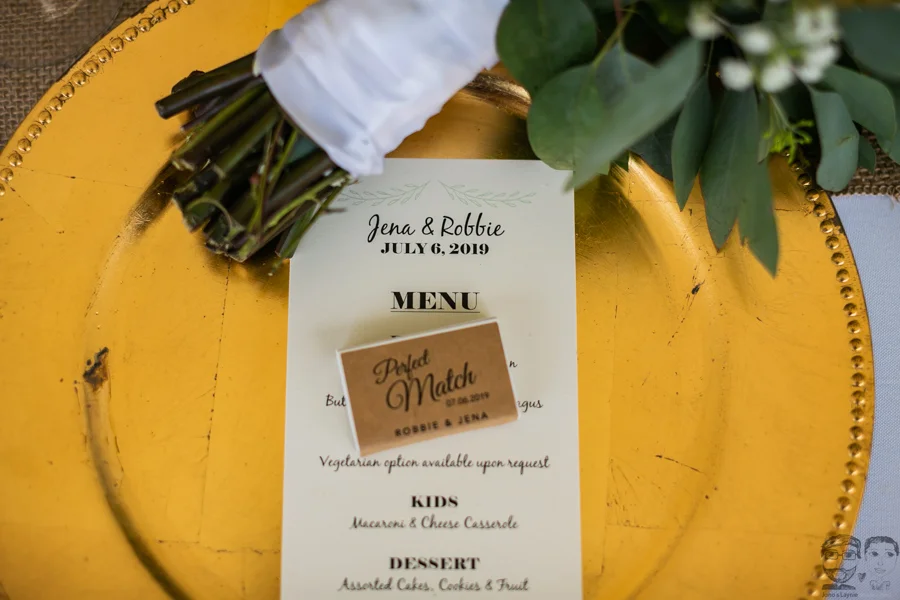 Jena & Robbie
JULY 6, 2019
MENU
Perfect
Match
07.06.2019
ROBBIE & JENA
Vegetarian option available upon request
KIDS
Macaroni & Cheese Casserole
DESSERT
Assorted Cakes, Cookies & Fruit